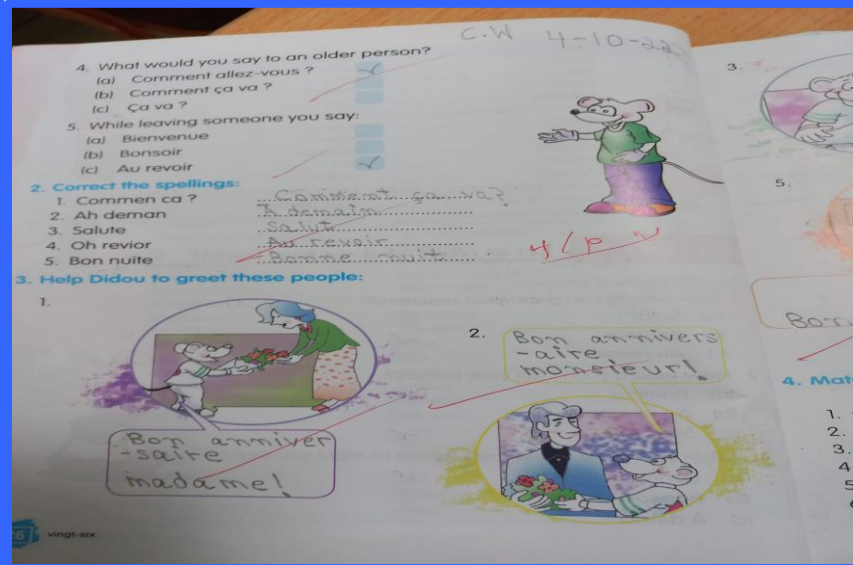 C.W 4-10-22
4. What would you say to an older person?
(a) Comment allez-vous ?
(b) Comment ça va ?
(c) Ça va ?
5. While leaving someone you say:
(a) Bienvenue
(b) Bonsoir
(c) Au revoir
2. Correct the spellings:
1. Commen ca ? Comment ça va?
2. Ah deman A demain
3. Salute Salut
4. Oh revior Au revoir
5. Bon nuite Bonne nuit
3. Help Didou to greet these people:
1.
Bon anniver
-saire
madame!
2.
Bon annivers
-aire
monsieur!
26 vingt-six
3.
5.
Bon
4. Mat
1.
2.
3.
4
5